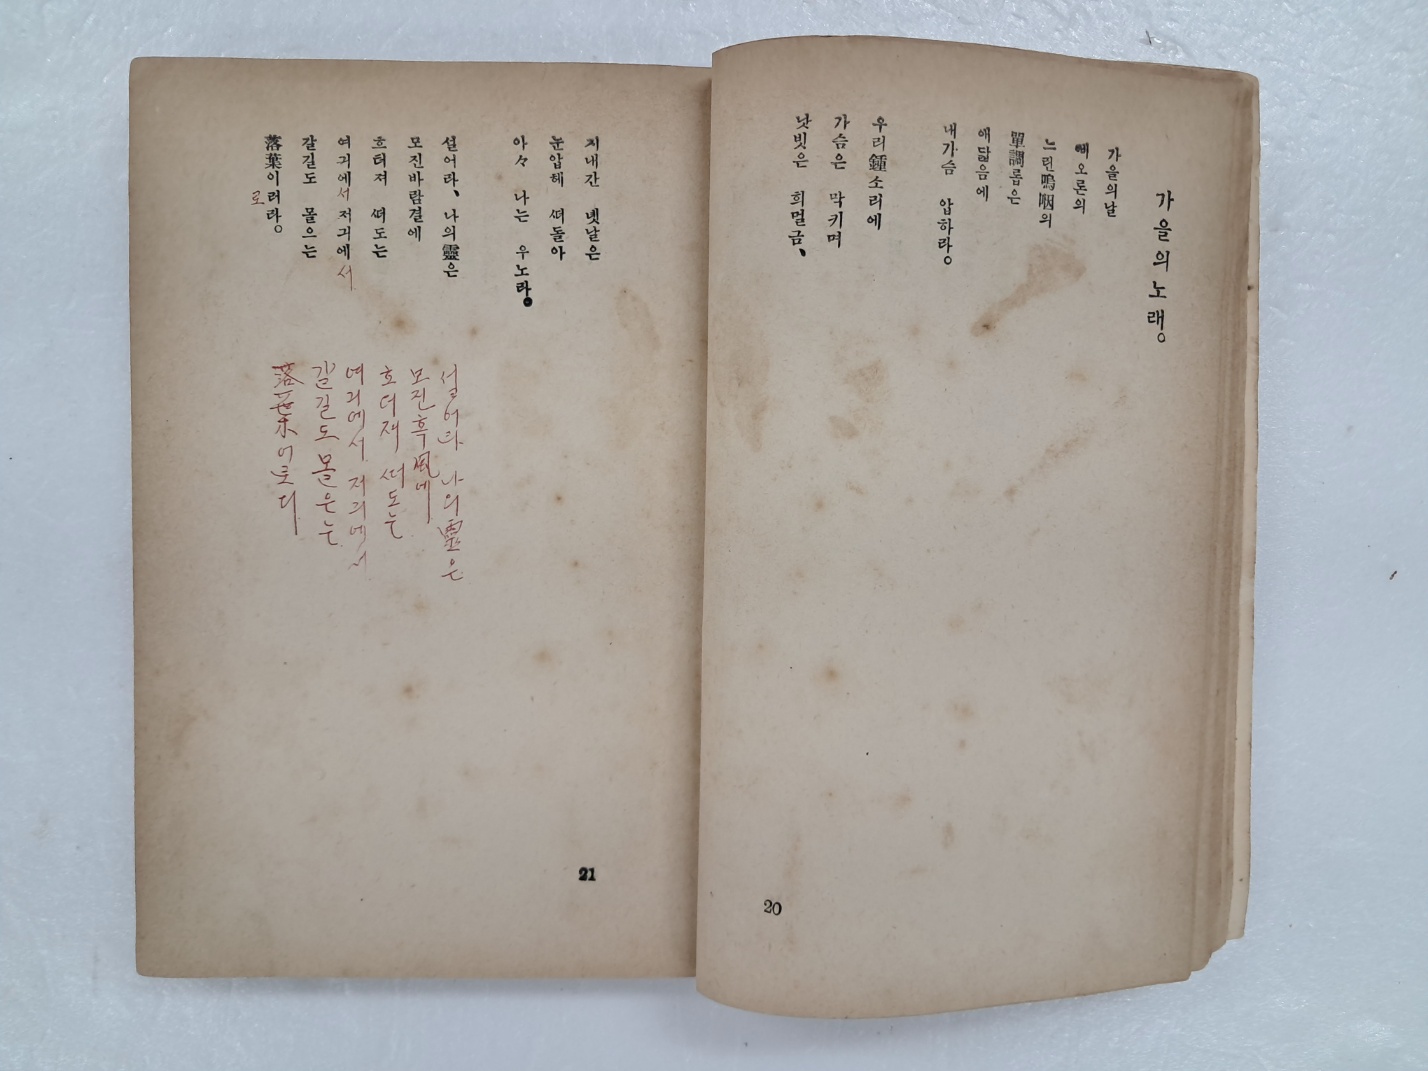 가을의노래。
가을의날
ᄲᅵ오론의
느린嗚咽의
單調롭은
애닯음에
내가슴 압하라。
우러鍾소리에
가슴은 막키며
낫빗은 희멀금、
20
지내간 녯날은
눈압헤 ᄯᅥ돌아
아々 나는 우노라。
설어라、나의靈은
모진바람결에
흐터져 ᄯᅥ도는
여긔에서저긔에서
갈길도 몰으는
落葉이러라。
로
설어라 나의靈은
모진흑風에
흐터재 ᄯᅥ도는
여긔에서 저긔에서
갈길도 몰은는
落葉이로다
21